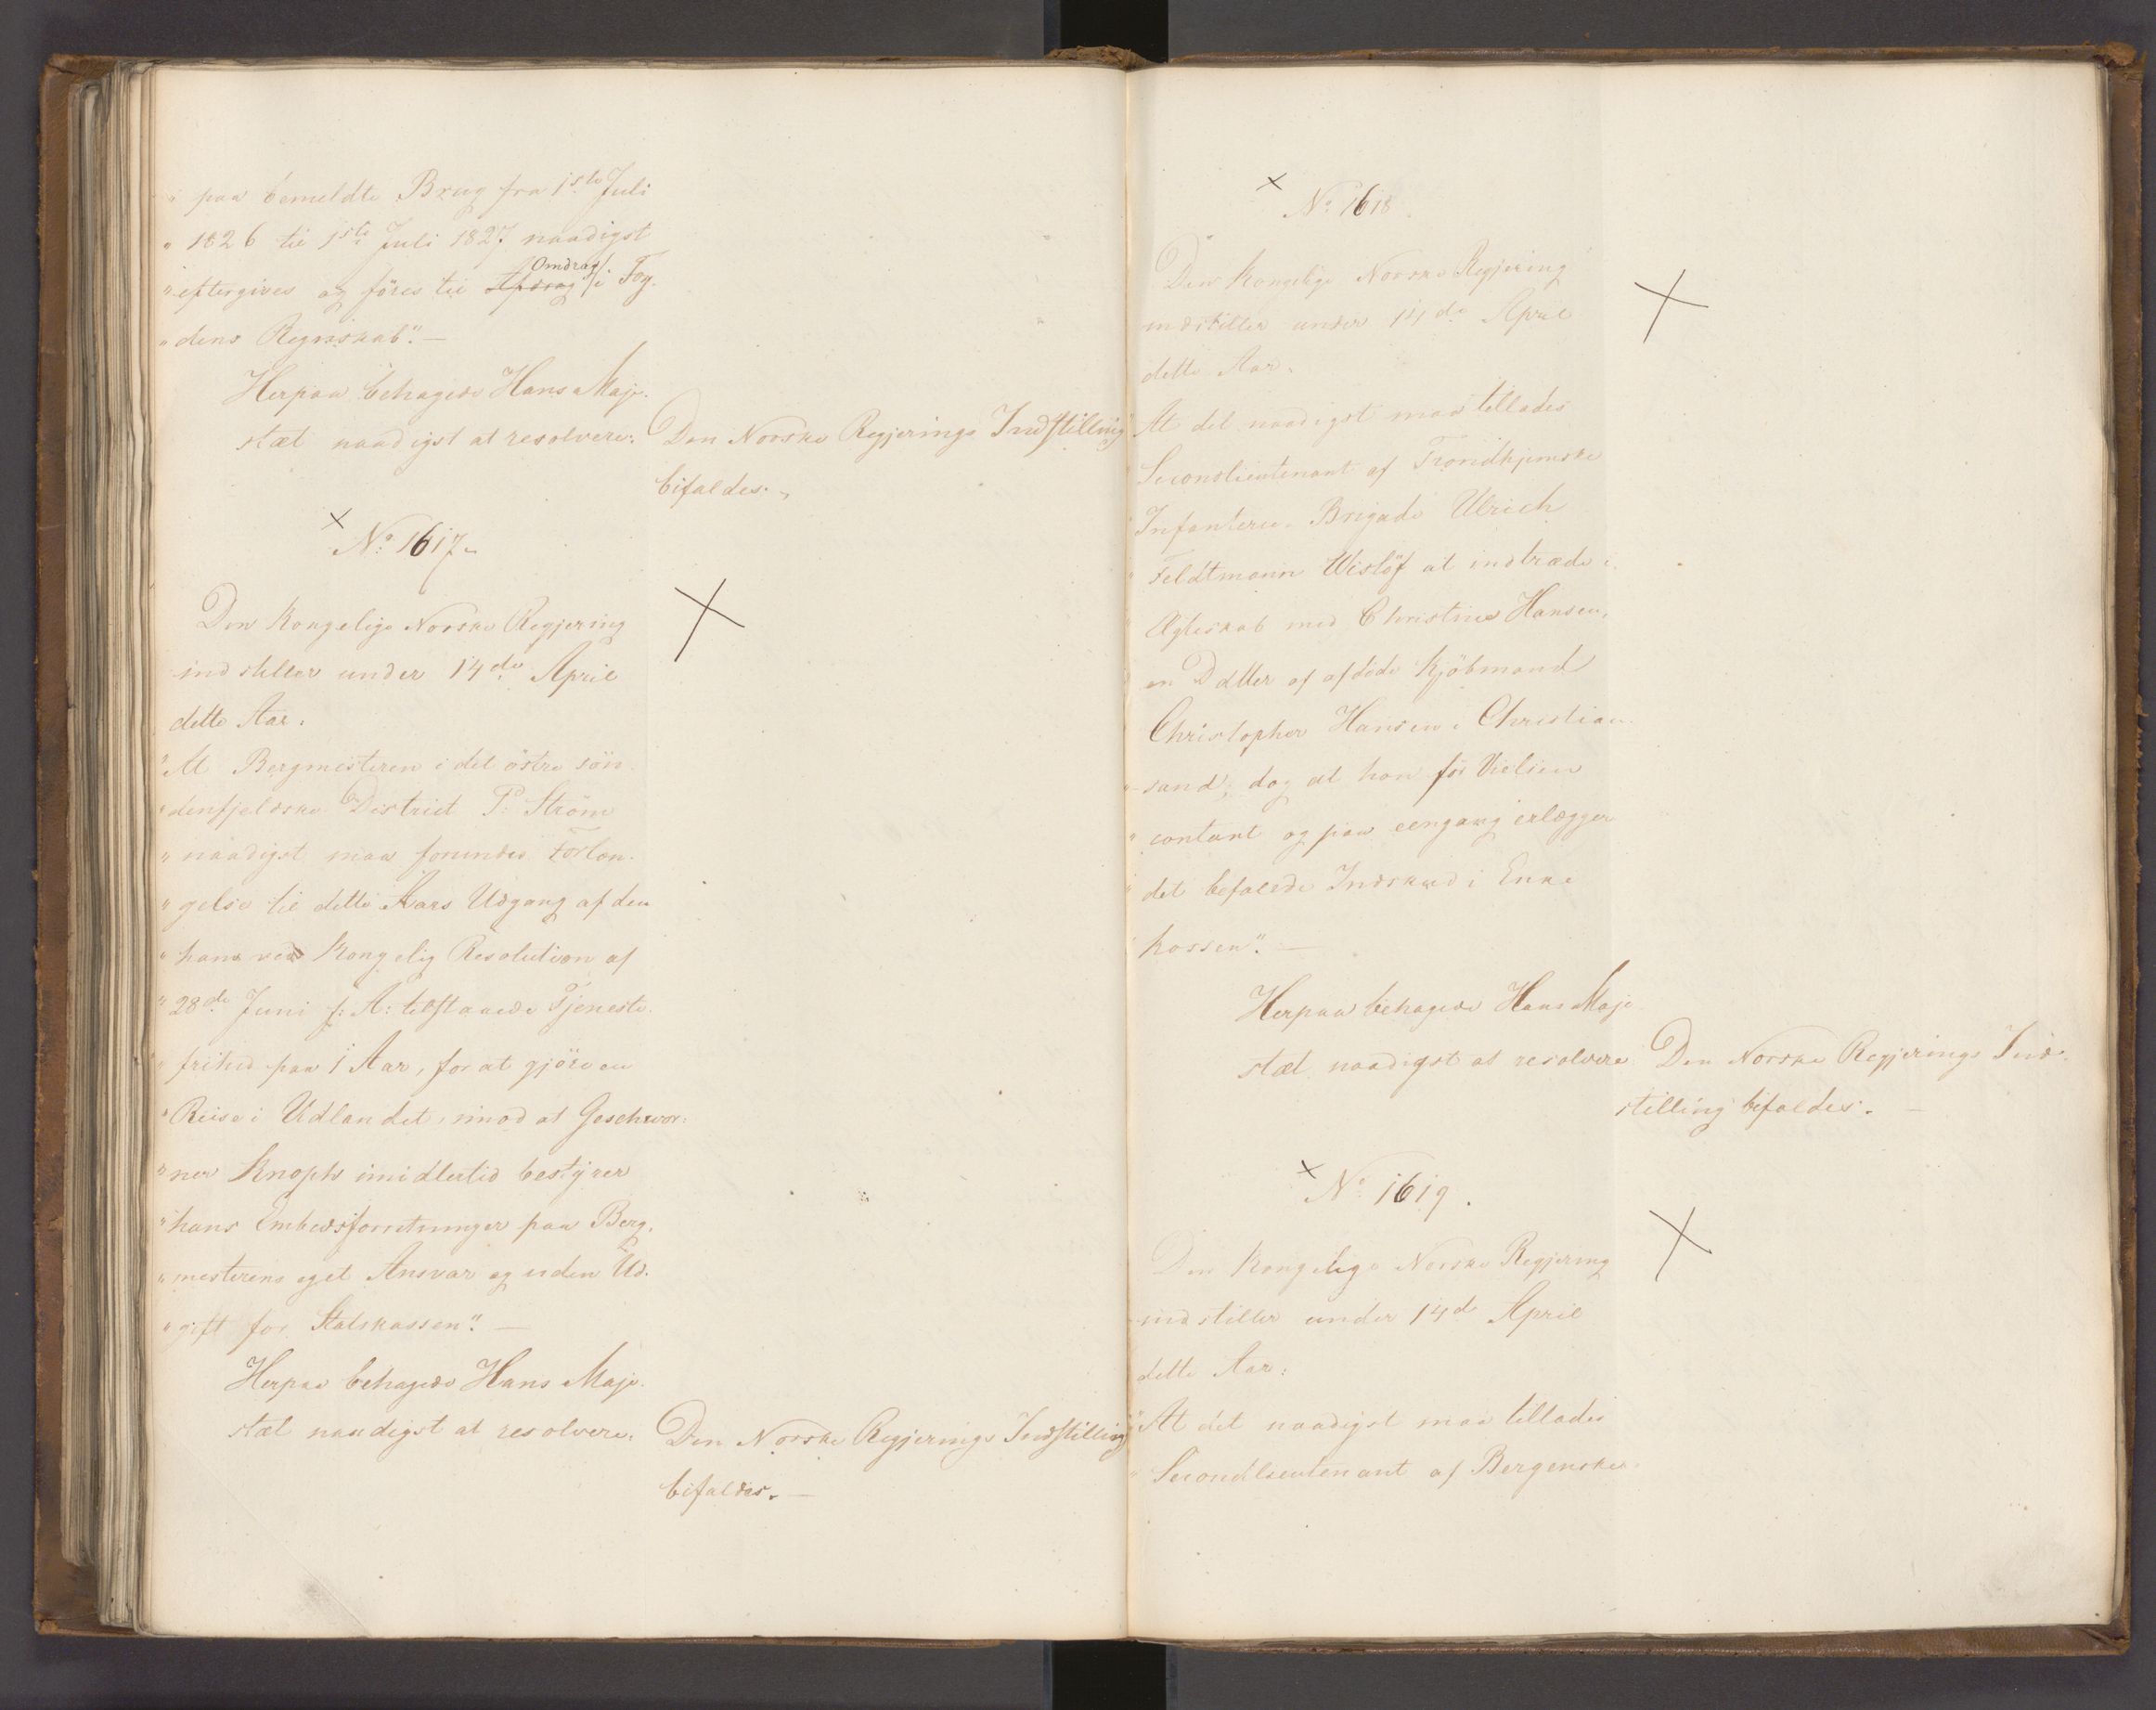 " paa bemeldte Brug fra 1ste Juli
" 1826 til 1ste Juli 1827 naadigst
" eftergives og föres til Afdrag Omdrag i Fog-
" dens Regnskab". —
Herpaa behagede Hans Maje-
stæt naadigst at resolvere:
Den Norske Regjerings Indstilling
bifaldes. —
No 1617.
Den Kongelige Norske Regjering
indstiller under 14de April
dette Aar:
" At Bergmesteren i det östre sön-
" denfjeldske District P. Ström
" naadigst maa forundes Forlæn-
" gelse til dette Aars Udgang af den
" ham ved Kongelig Resolution af
" 28de Juni f: A: tilstaaede Tjeneste-
" frihed paa 1 Aar, for at gjöre en
" Reise i Udlandet, imod at Geschwor-
" ner Knoph imidlertid bestyrer
" hans Embedsforretninger paa Berg-
" mesterens eget Ansvar og uden Ud-
" gift for Statskassen". —
Herpaa behagede Hans Maje-
stæt naadigst at resolvere:
Den Norske Regjerings Indstilling
bifaldes. —
No 1618
Den Kongelige Norske Regjering
indstiller under 14de April
dette Aar:
" At det naadigst maa tillades
" Secondlieutenant af Trondhjemske
" Infanterie-Brigade Ulrich
" Feldtmann Wislöf at indtræde i
" Ægteskab med Christine Hansen,
" en Datter af afdöde Kjöbmand
" Christopher Hansen i Christian-
" sand; dog at han för Vielsen
" contant og paa eengang erlægger
" det befalede Indskud i Enke-
" kassen". —
Herpaa behagede Hans Maje-
stæt naadigst at resolvere
Den Norske Regjerings Ind-
stilling bifaldes. —
No 1619.
Den Kongelige Norske Regjering
indstiller under 14de April
dette Aar:
" At det naadigst maa tillades
" Secondlieutenant af Bergenske